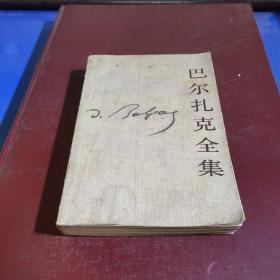 巴尔扎克全集
de Balzac